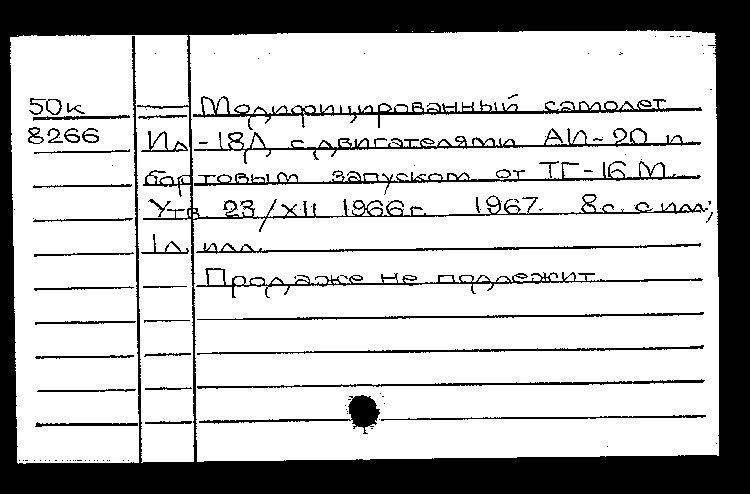 50к — Модифицированный самолет
8266 Ил-18Д с двигателями АИ-20 и
бортовым запуском от ТГ-16М.
Утв 23/XII 1966г. 1967. 8с. с илл;
1л. илл.
Продаже не подлежит.